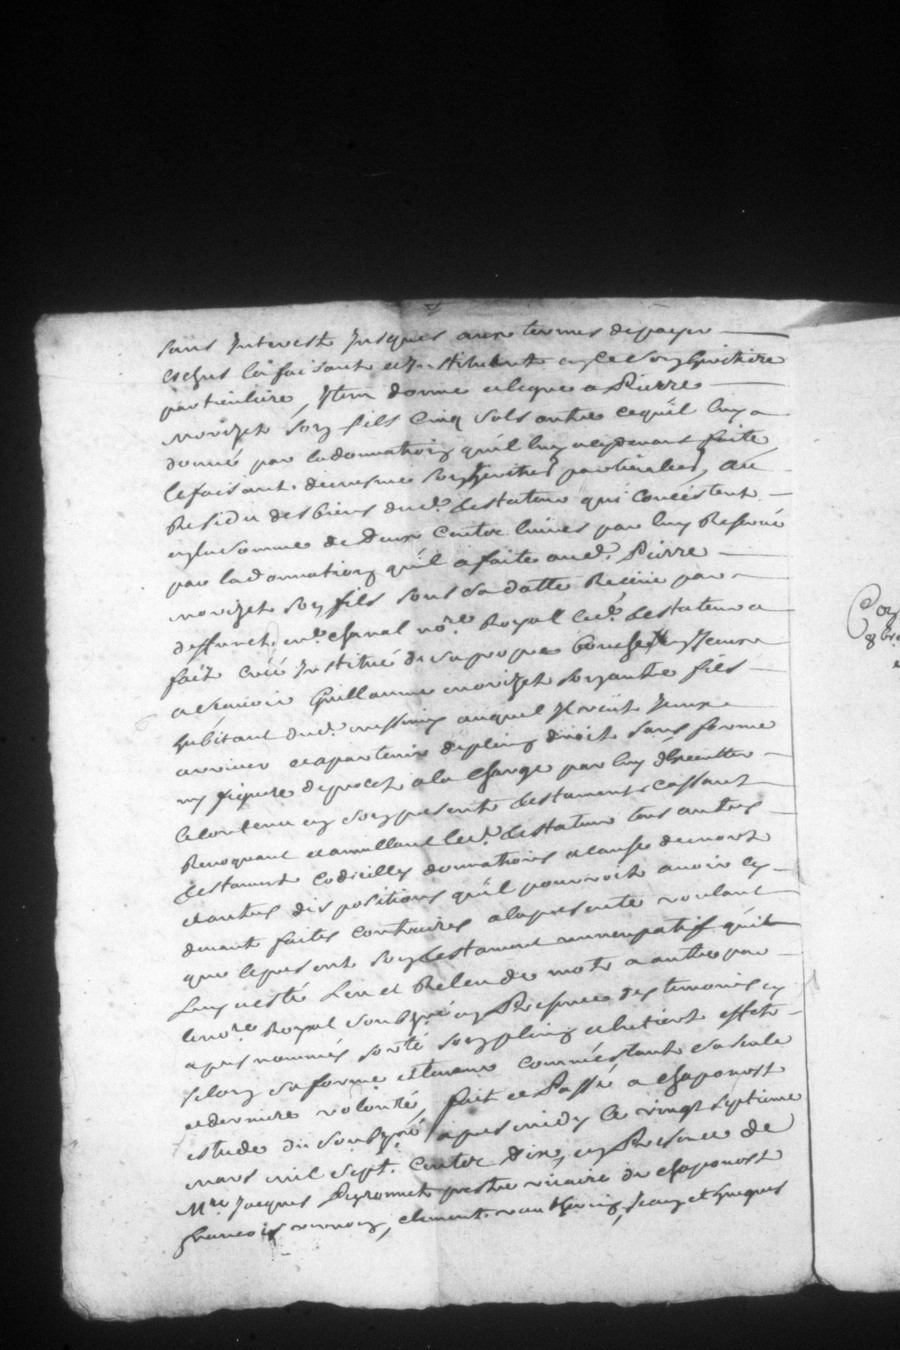 sans Interest Jusques aux termes depayer
eschus la faisante et Instituant en ce son heritiere
particuliere, Item donne et legue a Pierre
novizet son fils Cinq sols outre cequil luy a
donné par la donnation quil luy a cydevant faite
le faisant de mesme son heritier particulier, Au
Residu des biens dud. testateur qui Concistent
en la somme de deux Centz livres par luy Reservé
par la donnation quil a faite aud. Pierre
novizet son fils sous sa datte Receüe par
deffunct me. Chanal nore. Royal led. testateur a
fait Creé Institué de sa propre bouche
ascavoir Guillaume novizet son autre fils
habitant dud. messimy auquel Il veut
arriver et apartenir de plein droit sans forme
ny figure de procet, a la charge par luy
le contenu en son present testament cassant
Revoquant et annullant led. testateur tous autres
testament Codicilles donnations a cause de mort
et autres dispositions quil pourroit avoir cy
devant faites contraires a la presente voulant
que le present son testament nuncupatif quil
Luy a esté Leu et Releu de mot a autre par
le nore. Royal soubzné en Presence des temoins cy
apres nommés sorte son plein et entier effet
selon sa forme et teneur comme estant sa seule
et derniere volonté, fait et Passé a chaponost
estude du soubzné apres midy le vingt septieme
mars mil sept Centz dix, en Presence de
Mre Jacques Peyronnet prestre vicaire de chaponost
francois vernay, clement, Jean et hugues